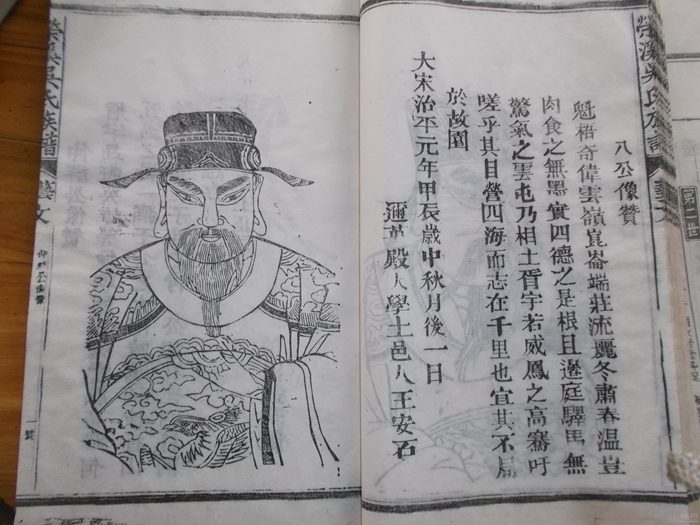 八公像贊
魁梧奇偉雲嶺崑崙端莊流麗冬肅春溫豈
肉食之無墨實四德之是根且邊庭驛馬無
驚氣之雲屯乃相土胥宇若威鳳之高騫吁
嗟乎其目營四海而志在千里也宜其不局
於故園
大宋治平元年甲辰歲中秋月後一日
邇英殿大學士邑人王安石
榮溪吳氏族譜
藝文
榮溪吳氏族譜
藝文
一贊
世